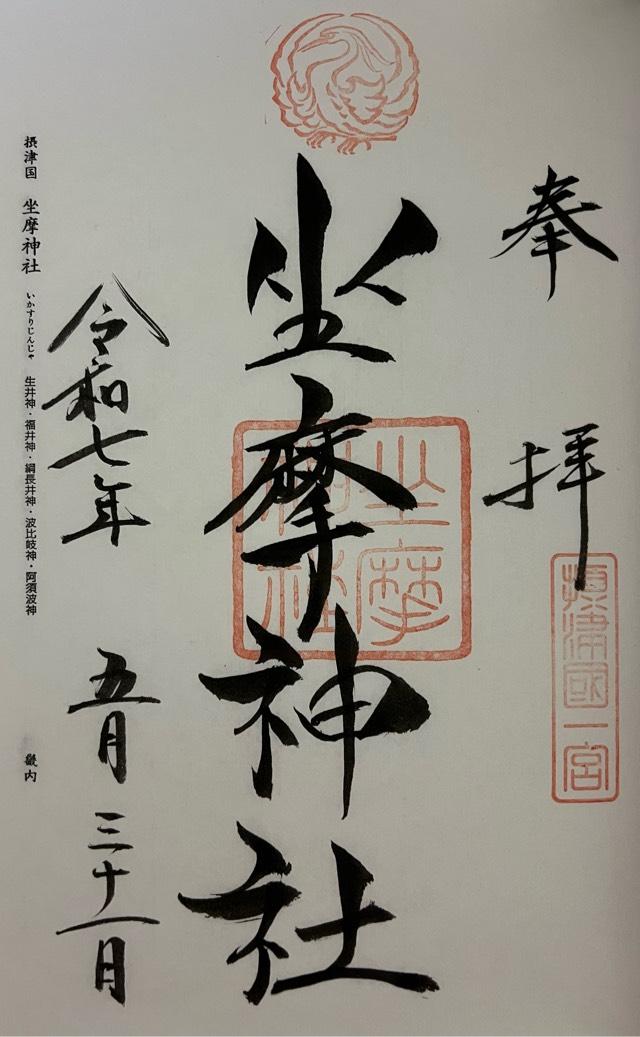 奉拝
攝津國一宮
坐摩神社
坐摩神社
令和七年 五月 三十一日
摂津国 坐摩神社 いかすりじんじゃ 生井神・福井神・綱長井神・波比岐神・阿須波神 畿内